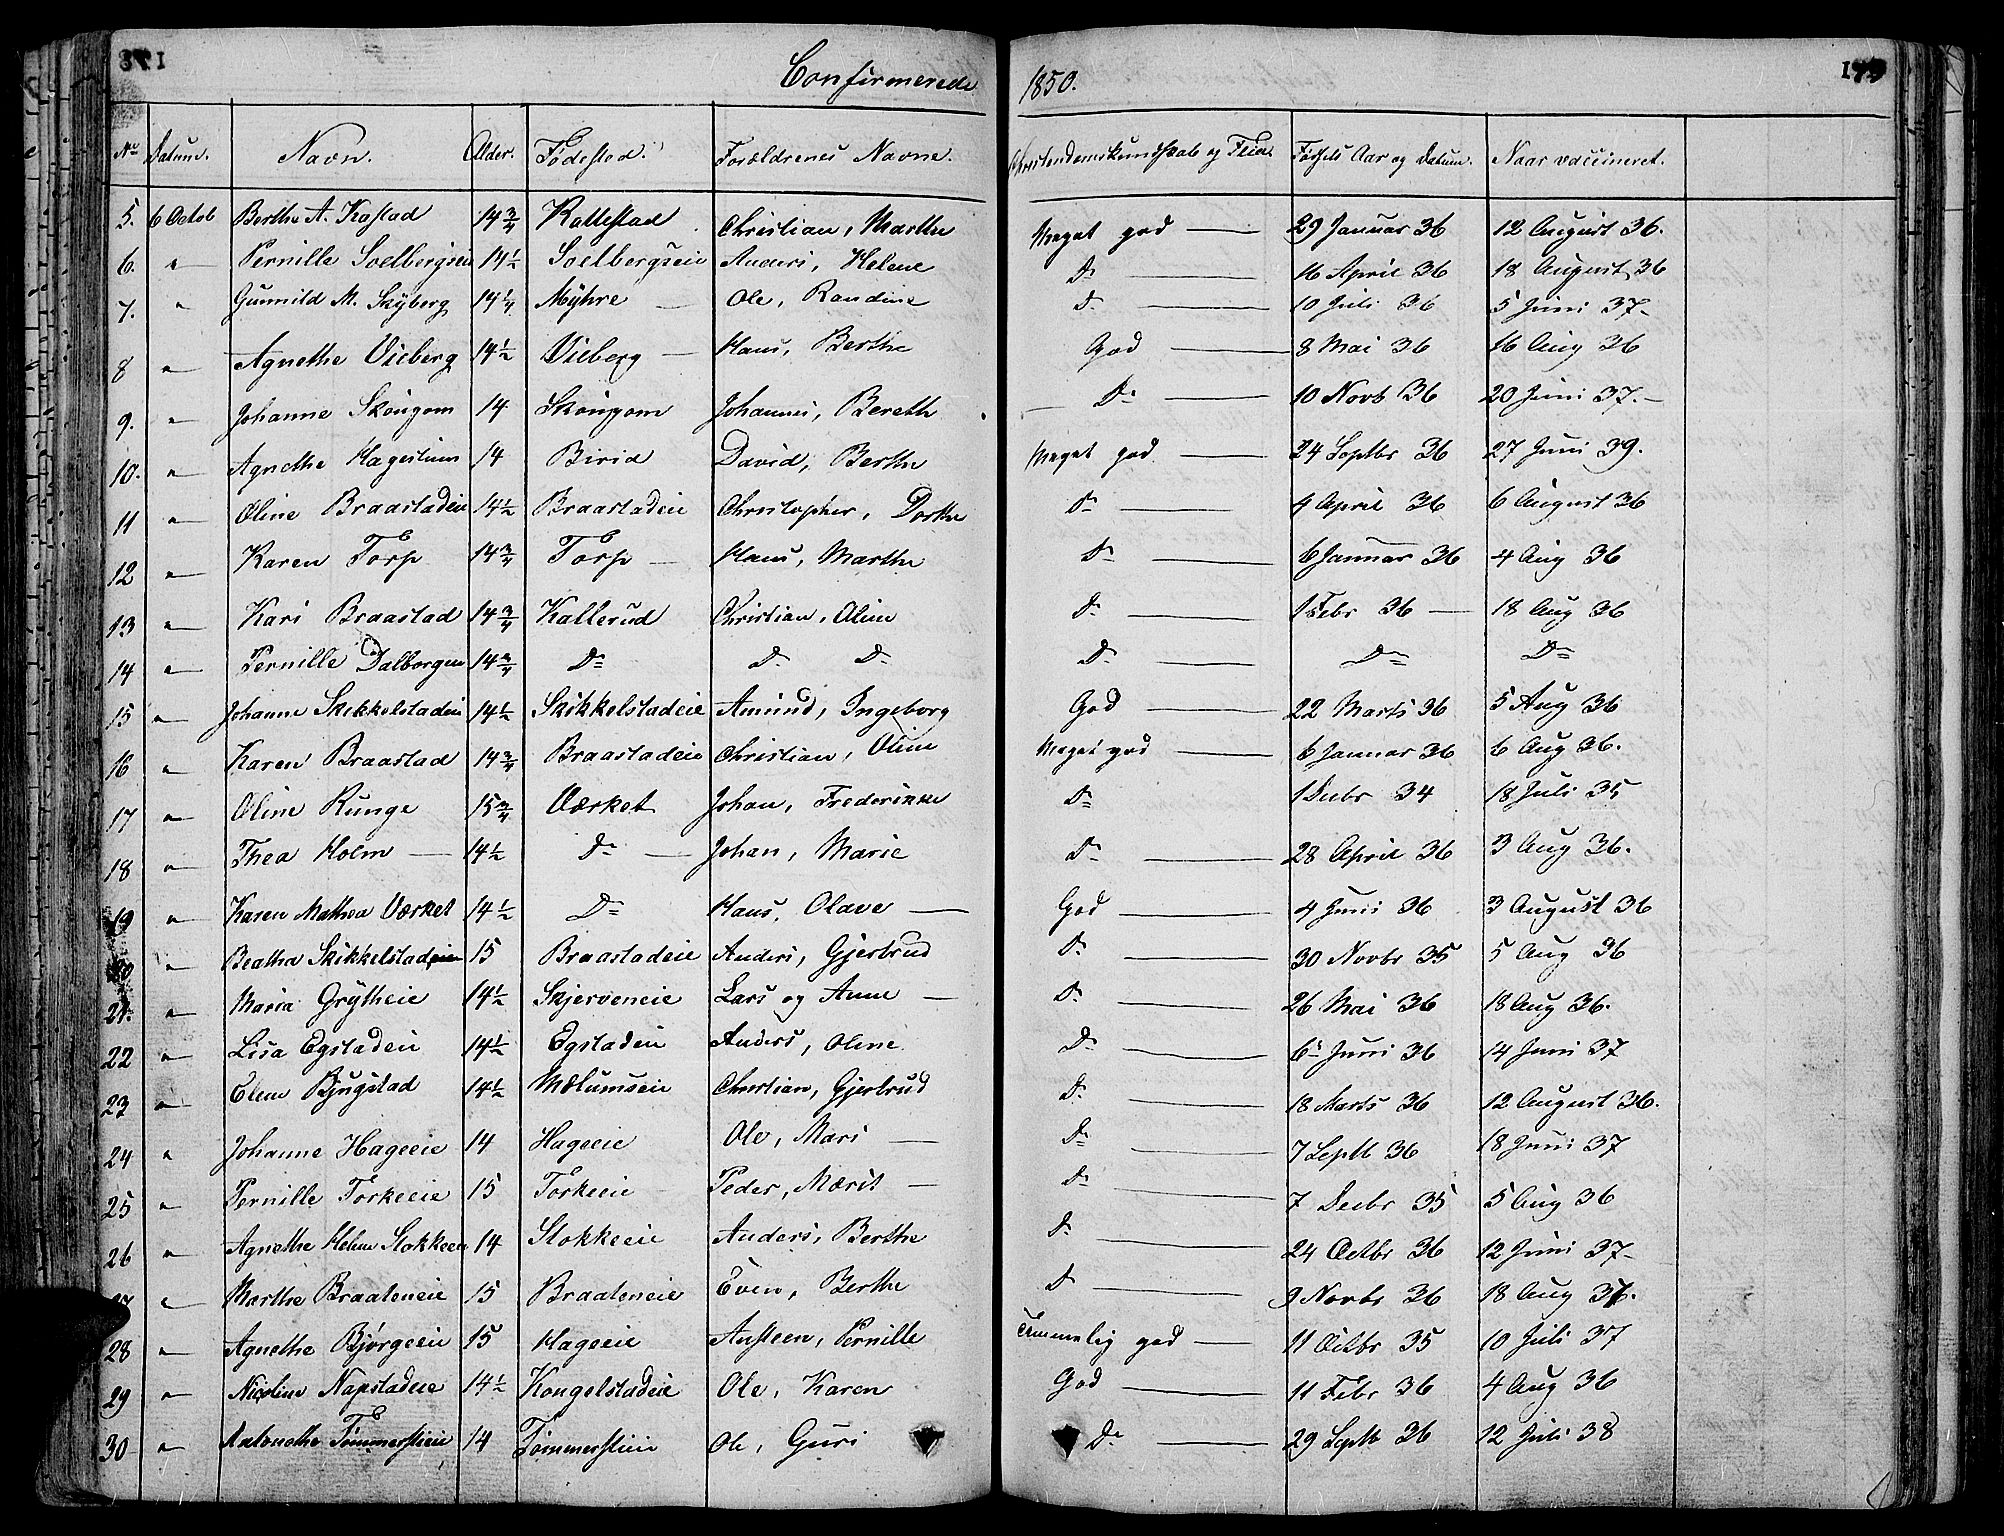 178 Confirmerede 1850. 179
No Datum. Navn. Alder. Fødested. Forældrenes Navne. Christendomskundskab og Flid. Fødsels Aar og Datum. Naar vaccineret.
5. 6 Octob Berthe A. Kastad 14 3/4 Kallestad Christian, Marthe Meget god 29 Januar 36 12 August 36.
6. " Pernille Soelbergseie 14 1/2 Soelbergseie Anders, Helene Do 16 April 36 18 August 36
7. " Gunnild M. Skyberg 14 1/4 Myhre Ole, Randine Do 10 Juli 36 5 Juni 37
8 " Agnethe Vieberg 14 1/2 Vieberg Hans, Berthe God 8 Mai 36 16 Aug 36
9. " Johanne Skougom 14 Skougom Johannes, Berethe Do 10 Novb 36 20 Juni 37.
10. " Agnethe Hagestuen 14 Birid David, Berthe Meget god 24 Septbr 36 27 Juni 39.
11 " Oline Braastadeie 14 1/2 Braastadeie Christopher, Dorthe Do 4 April 36 6 August 36
12 " Karen Torp 14 3/4 Torp Hans, Marthe Do 6 Januar 36 4 Aug 36
13 " Kari Braastad 14 3/4 Kallerud Christian, Oline Do 1 Febr 36 18 Aug 36
14 " Pernille Dalborgen 14 3/4 Do Do Do Do Do Do
15 " Johanne Skikkelstadeie 14 1/2 Skikkelstadeie Amund, Ingeborg God 22 Marts 36 5 Aug 36
16 " Karen Braastad 14 3/4 Braastadeie Christian, Oline Meget god 6 Januar 36 6 Aug 36.
17 " Oline Runge 15 3/4 Værket Johan, Frederikke Do 1 Decbr 34 18 Juli 35
18 " Thea Holm 14 1/2 Do Johan, Marie Do 28 April 36 3 Aug 36.
19 " Karen Mathea Værket 14 1/2 Do Hans, Olave God 4 Juni 36 3 August 36
20 " Beatha Skikkelstadeie 15 Braastadeie Anders, Gjertrud Do 30 Novbr 35 5 Aug 36
21. " Maria Grytheie 14 1/2 Skjerveneie Lars og Anne Do 26 Mai 36 18 Aug 36.
22 " Lisa Egstadeie 14 1/2 Egstadeie Anders, Oline. Do 6 Juni 36 14 Juni 37
23 " Elene Bjugstad 14 1/2 Mælumseie Christian, Gjertrud Do 18 Marts 36 12 August 36.
24 " Johanne Hageeie 14 Hageeie Ole, Mari Do 7 Septb 36 18 Juni 37
25 " Pernille Torkeeie 15 Torkeeie Peder, Marit Do 7 Decbr 35 5 Aug 36
26 " Agnethe Helene Stokkeeie 14 Stokkeeie Anders, Berthe Do 24 Octbr 36 12 Juni 37
27 " Marthe Braateneie 15 Braateneie Even, Berthe Do 9 Novbr 36 18 Aug 37.
28 " Agnethe Bjørgeeie 15 Hageeie Ansteen, Pernille Temmelig god 11 Octbr 35 10 Juli 37
29 " Nicoline Napstadeie 14 1/2 Kongelstadeie Ole, Karen God 11 Febr 36 4 Aug 36
30 " Antonethe Tømmerstieie 14 Tømmerstieie Ole, Guri Do 29 Septb 36 12 Juli 38